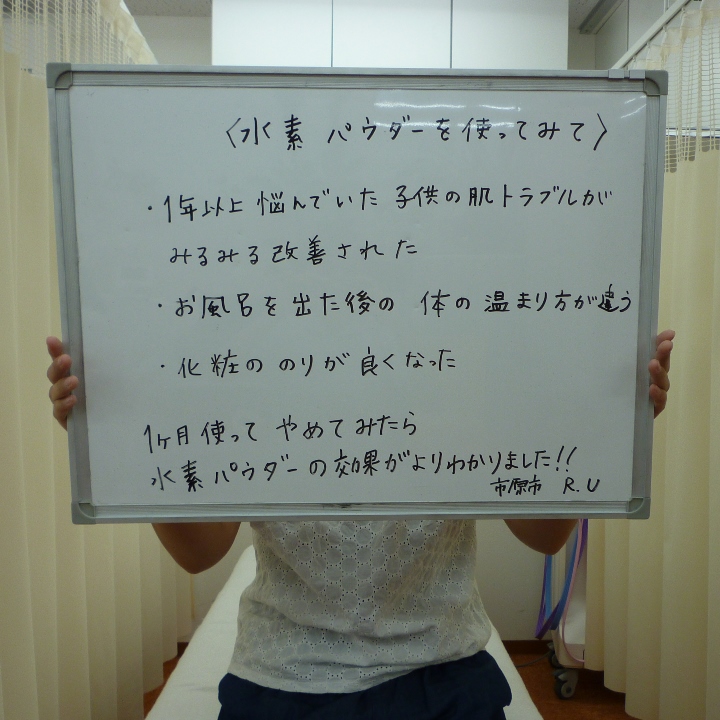 〈水素 パウダーを使ってみて〉
・1年以上 悩んでいた 子供の肌トラブルが
みるみる改善された
・お風呂を出た後の 体の 温まり方が違う
・化粧の のりが 良くなった
1ヶ月使って やめてみたら
水素パウダーの効果がよりわかりました!!
市原市 R.U